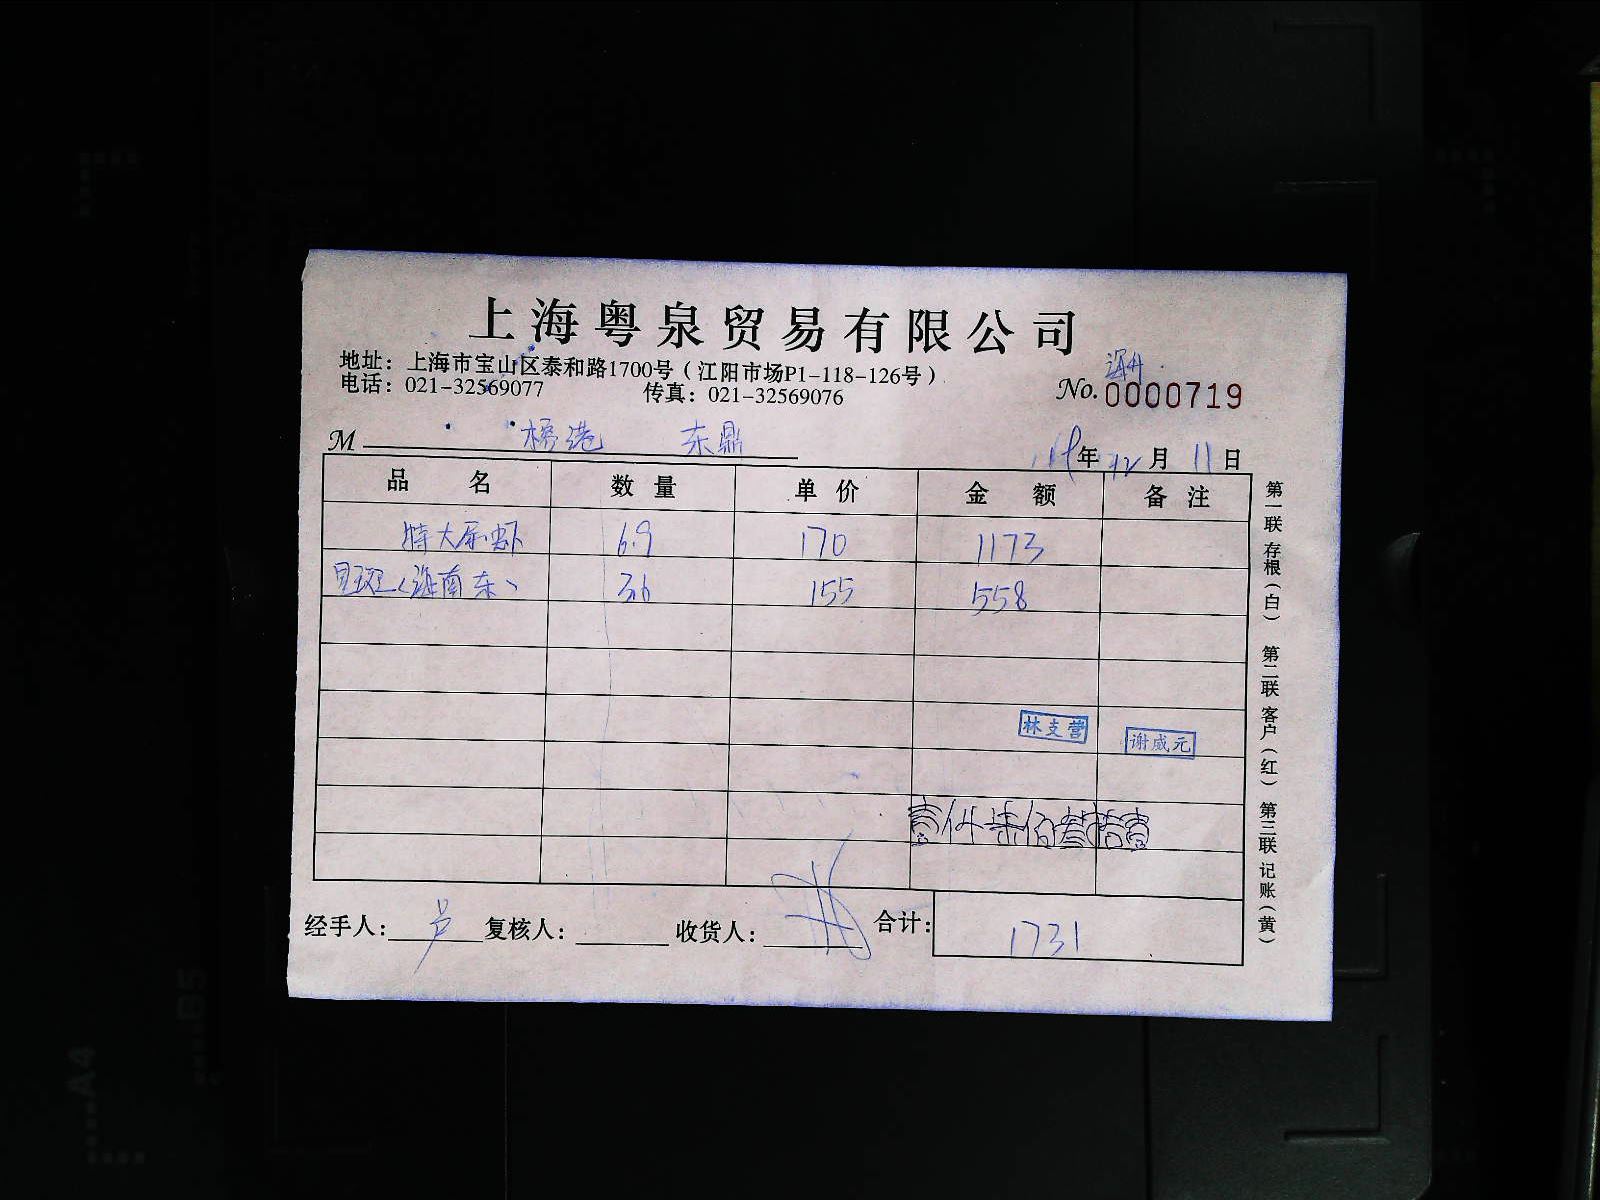 上海粤泉贸易有限公司
地址：上海市宝山区泰和路1700号（江阳市场P1-118-126号）
电话：021-32569077 传真：021-32569076
No.0000719
M 榜港 东鼎
年12月11日
品名 数量 单价 金额 备注
特大尿虾 6.9 170 1173
斑（海南东） 3.6 155 558
林支营
谢咸元
壹仟柒佰叁拾壹
经手人： 复核人： 收货人： 合计：1731
第一联 存根（白） 第二联 客户（红） 第三联 记账（黄）
B5
A4